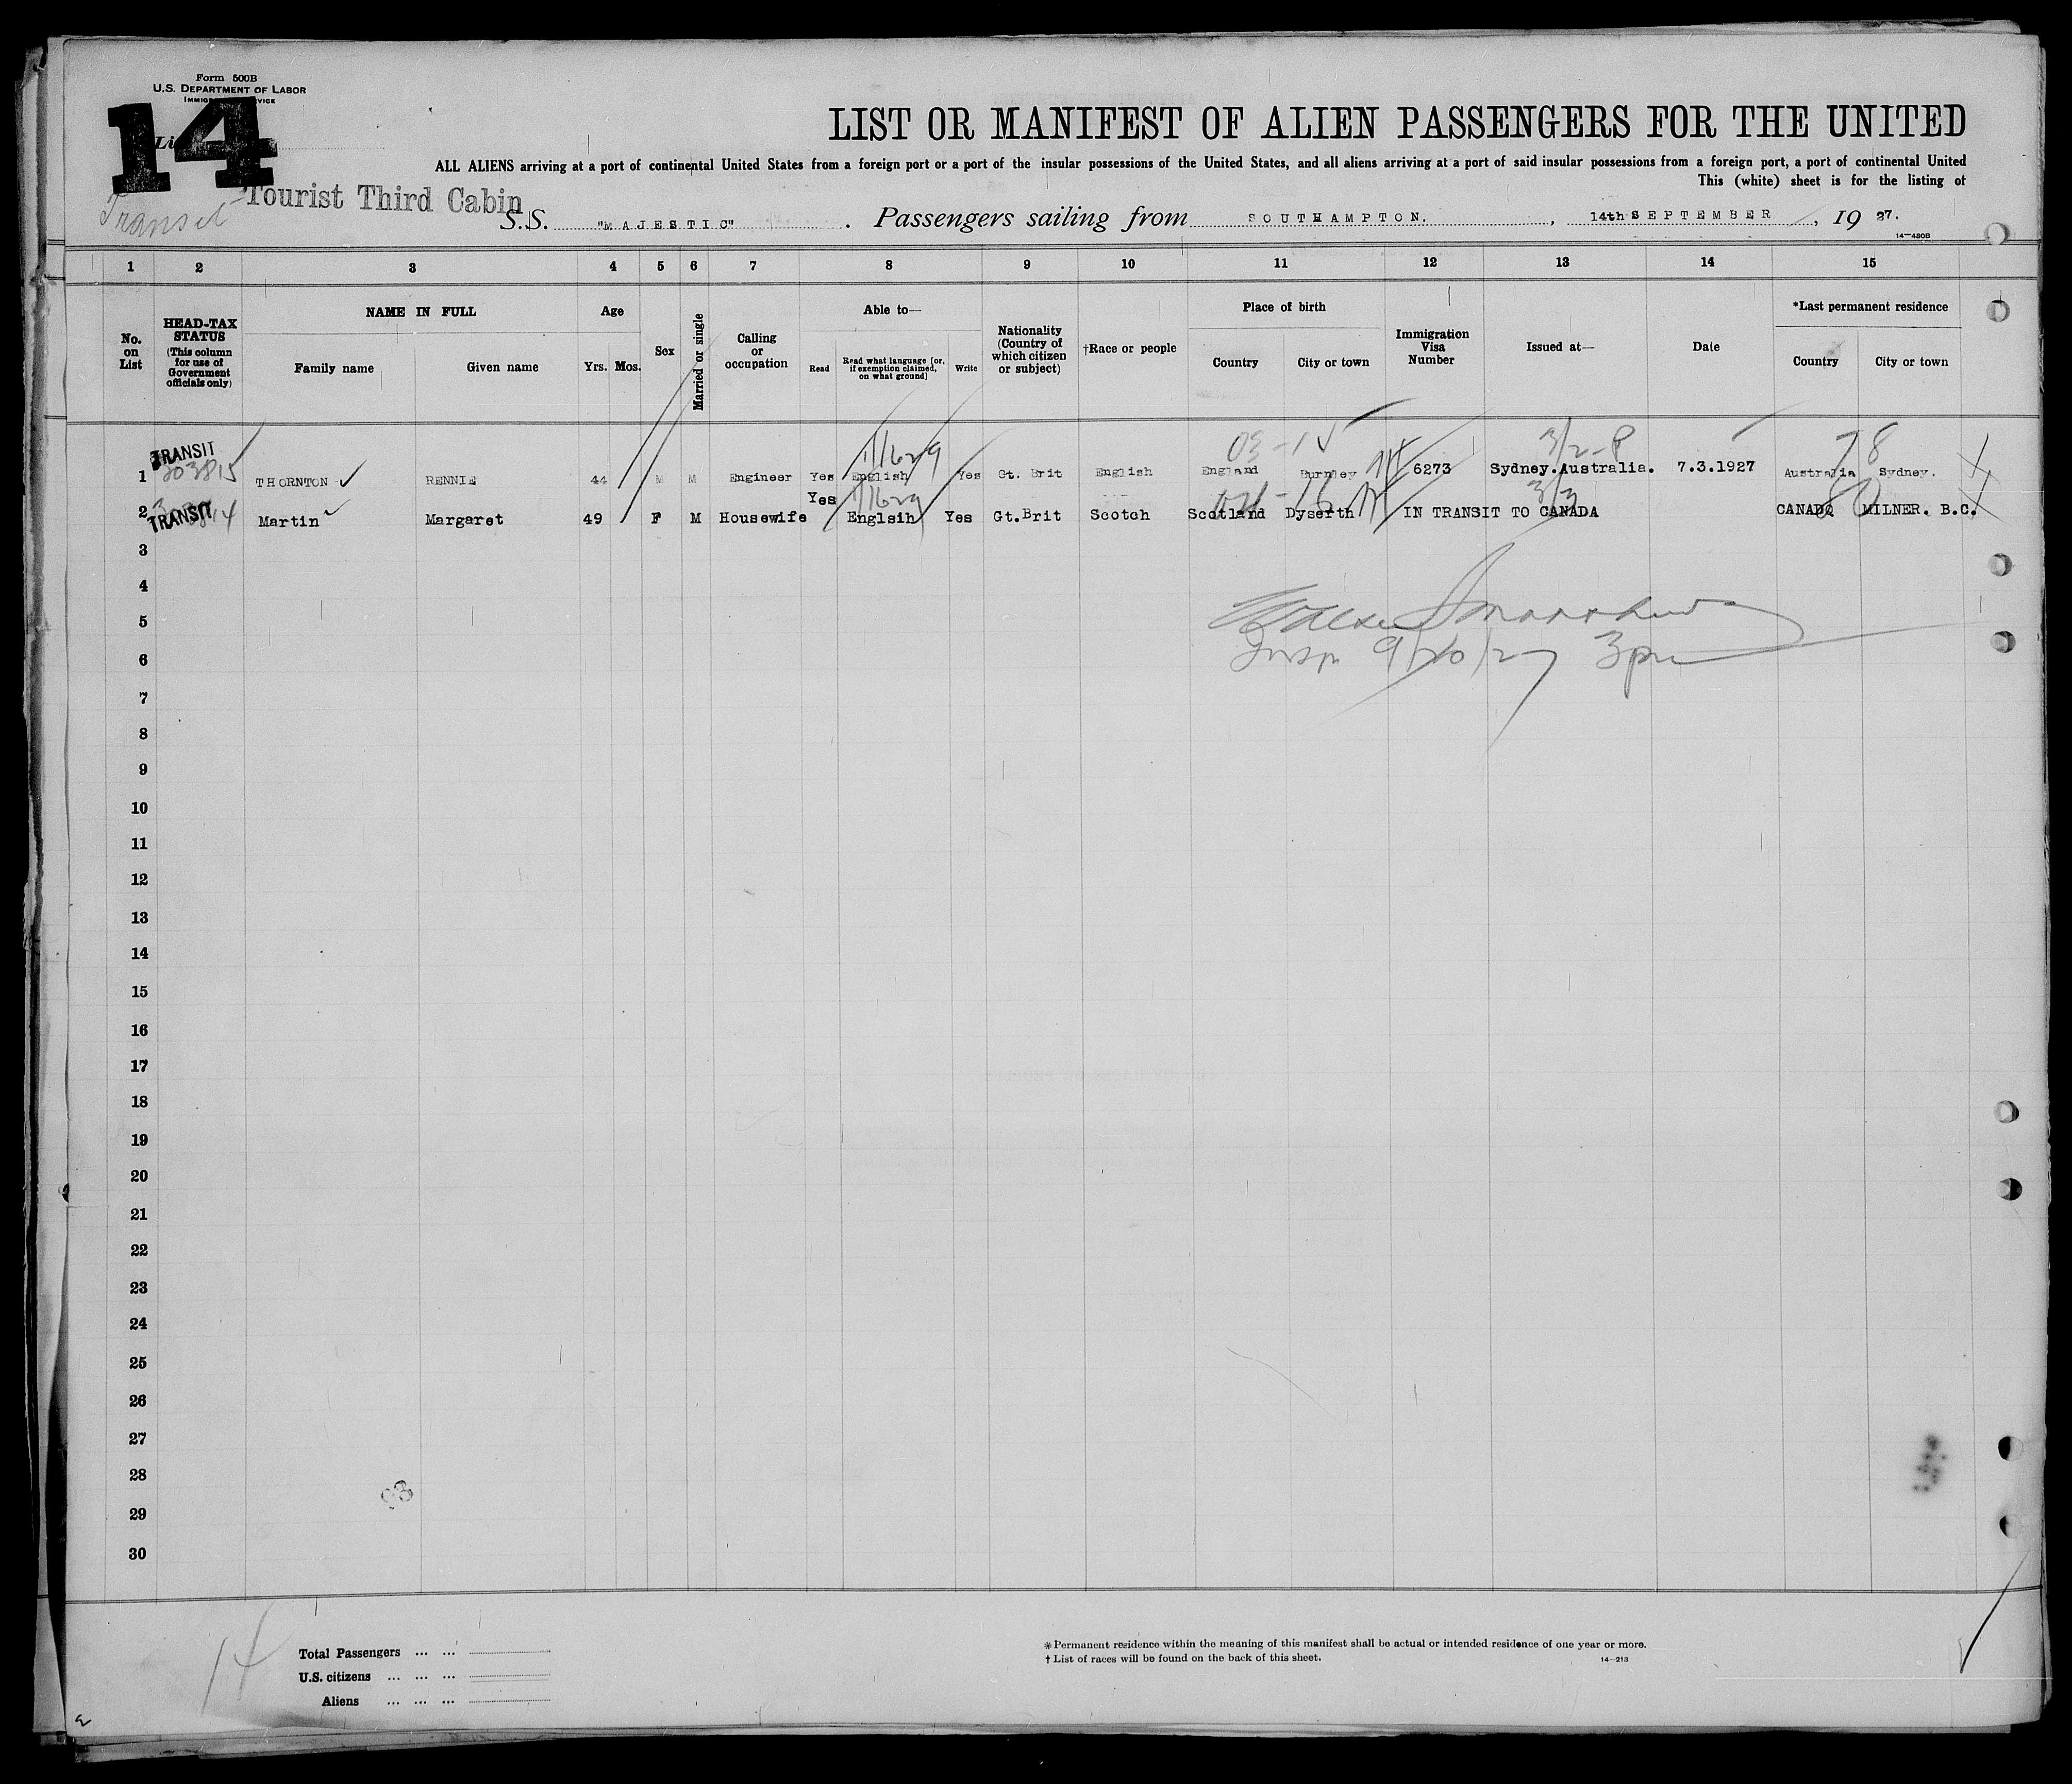 Form 500B
U.S. DEPARTMENT OF LABOR
14
LIST OR MANIFEST OF ALIEN PASSENGERS FOR THE UNITED
ALL ALIENS arriving at a port of continental United States from a foreign port or a port of the insular possessions of the United States, and all aliens arriving at a port of said insular possessions from a foreign port, a port of continental United
This (white) sheet is for the listing of
Tourist Third Cabin
Transit
S.S. "MAJESTIC". Passengers sailing from SOUTHAMPTON, 14th SEPTEMBER, 19 27.
14—430B
1 2 3 4 5 6 7 8 9 10 11 12 13 14 15
No. on List
HEAD-TAX STATUS (This column for use of Government officials only)
NAME IN FULL
Family name Given name
Age
Yrs. Mos.
Sex
Married or single
Calling or occupation
Able to—
Read Read what language [or, if exemption claimed, on what ground] Write
Nationality (Country of which citizen or subject)
†Race or people
Place of birth
Country City or town
Immigration Visa Number
Issued at—
Date
*Last permanent residence
Country City or town
TRANSIT 11629 3/2-P 78
1 303815 THORNTON RENNIE 44 M M Engineer Yes English Yes Gt. Brit English England Burnley 6273 Sydney.Australia. 7.3.1927 Australia Sydney.
Yes 11629 3/3
2 TRANSIT Martin Margaret 49 F M Housewife Englsih Yes Gt.Brit Scotch Scotland Dyserth IN TRANSIT TO CANADA CANADA MILNER. B.C.
3
4
5
6 Insp 9/20/27 3pm
7
8
9
10
11
12
13
14
15
16
17
18
19
20
21
22
23
24
25
26
27
28
29
30
14
Total Passengers ... ...
U.S. citizens ... ... ...
Aliens ... ... ...
*Permanent residence within the meaning of this manifest shall be actual or intended residence of one year or more.
†List of races will be found on the back of this sheet. 14—213